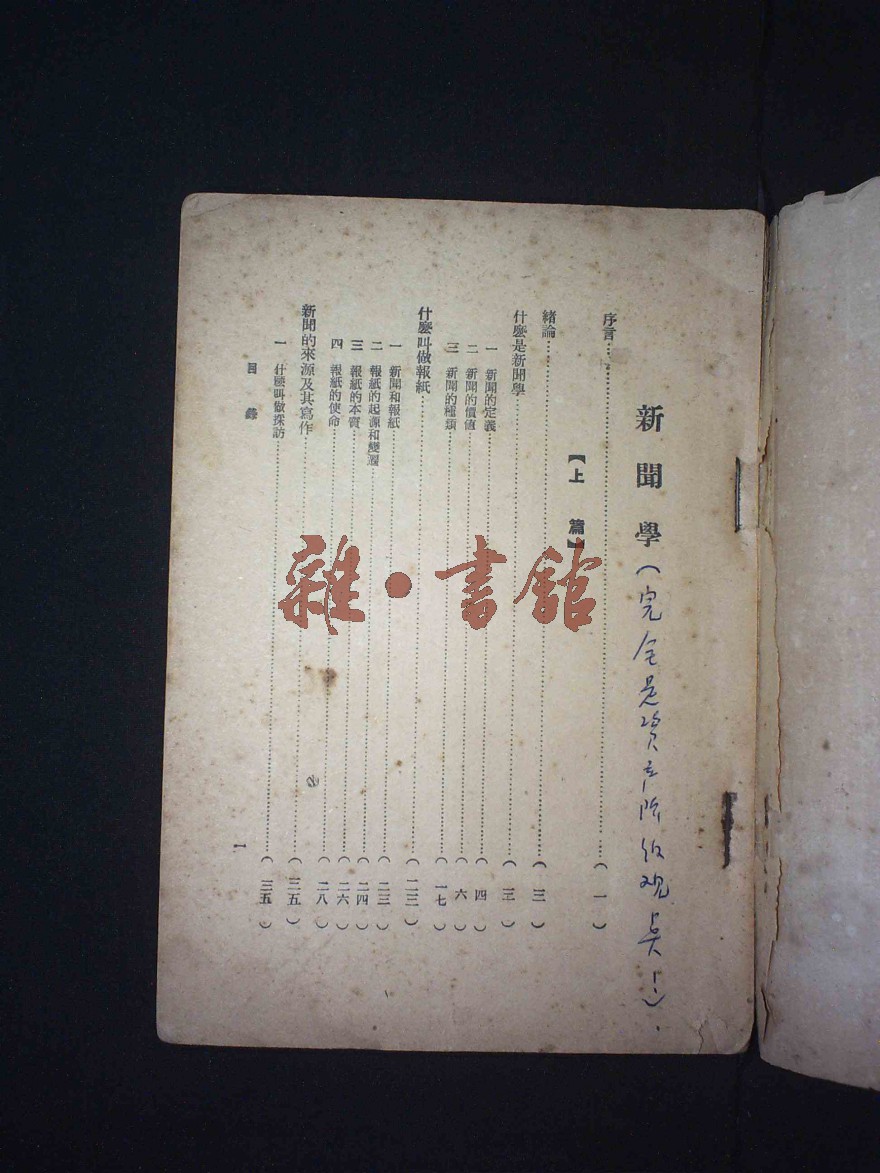 新聞學(完全是資产阶级观点!)
序言……(一)
【上篇】
緒論……(三)
什麼是新聞學……(三)
一 新聞的定義……(四)
二 新聞的價値……(六)
三 新聞的種類……(一七)
什麼叫做報紙……(二三)
一 新聞和報紙……(二三)
二 報紙的起源和變遷……(二四)
三 報紙的本質……(二六)
四 報紙的使命……(二八)
新聞的來源及其寫作……(三五)
一 什麼叫做採訪……(三五)
目錄
1
雜·書館